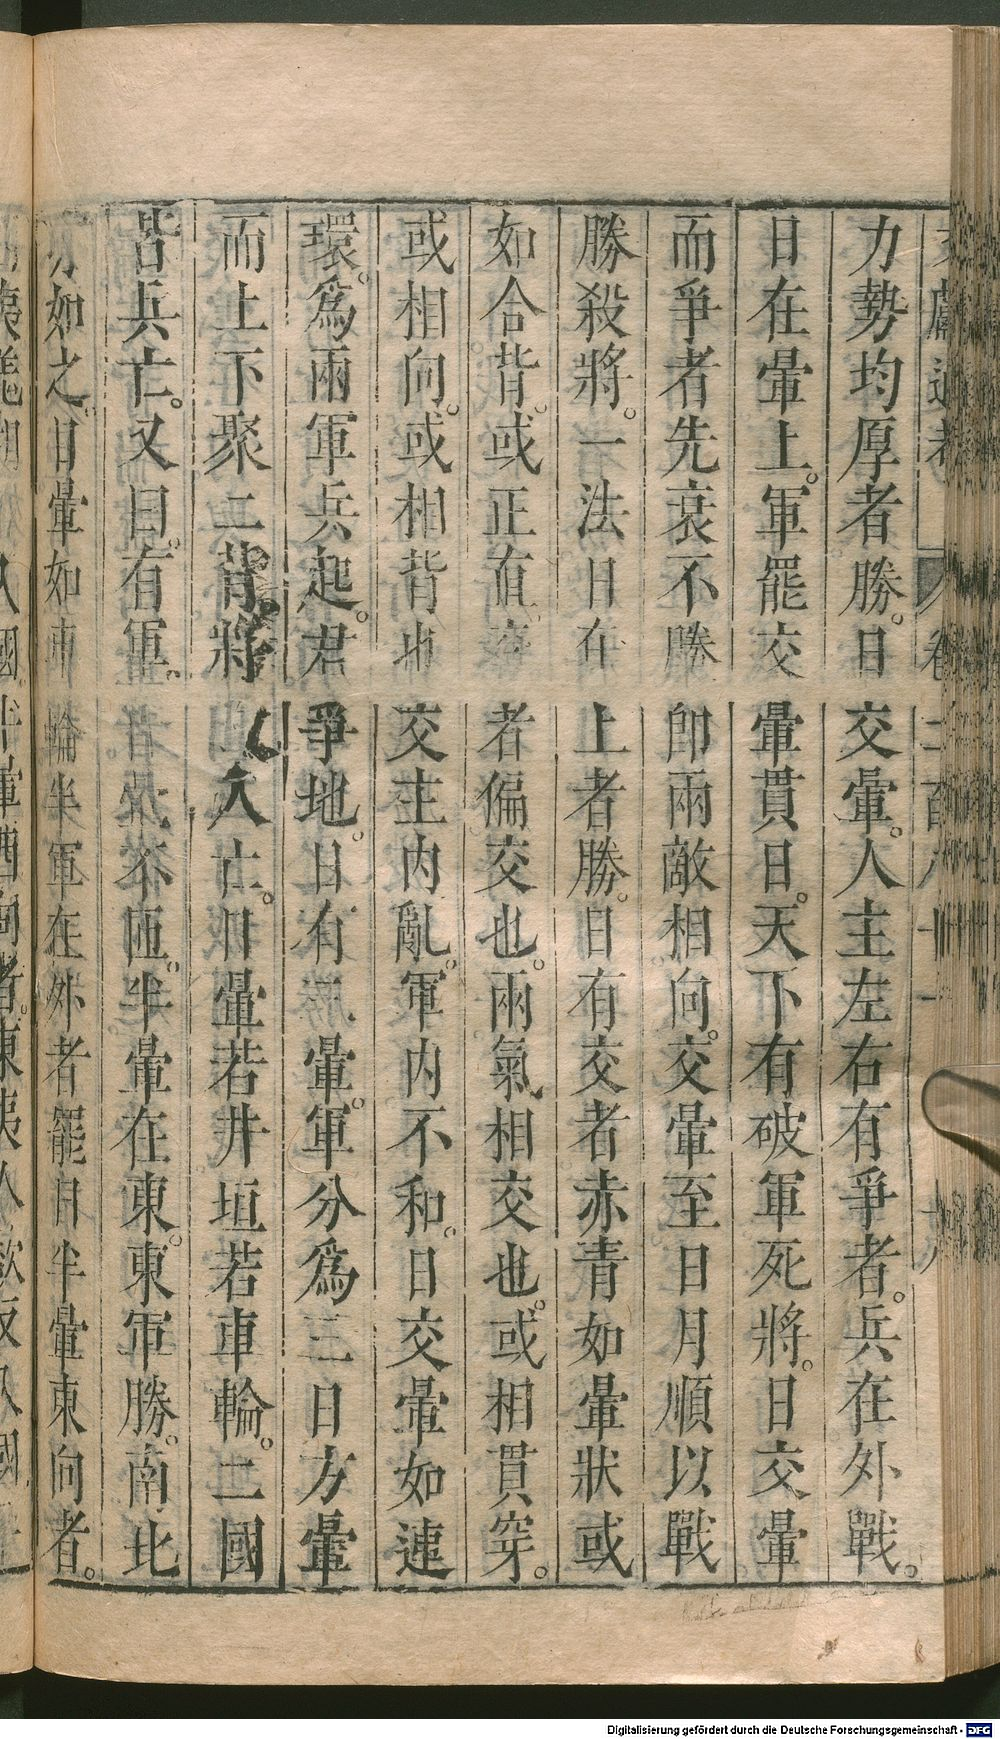 力勢均厚者勝。日交暈。人主左右有爭者。兵在外戰。
日在暈上。軍罷交暈貫日。天下有破軍死將。日交暈
而爭者先衰不勝卽兩敵相向。交暈至日月順以戰
勝殺將。一法日在上者勝。日有交者赤青如暈狀或
如合背。或正直交者偏交也。兩氣相交也。或相貫穿。
或相向。或相背也交主內亂。軍內不和。日交暈如連
環。爲兩軍兵起。君爭地。日有三暈。軍分爲三日方暈
而上下聚二背將人亡。日暈若井垣若車輪。二國
皆兵亡。又曰。有軍。不匝。半暈在東。東軍勝。南北
方如之。日暈如車輪半軍在外者罷月半暈東向者。
Digitalisierung gefördert durch die Deutsche Forschungsgemeinschaft - DFG